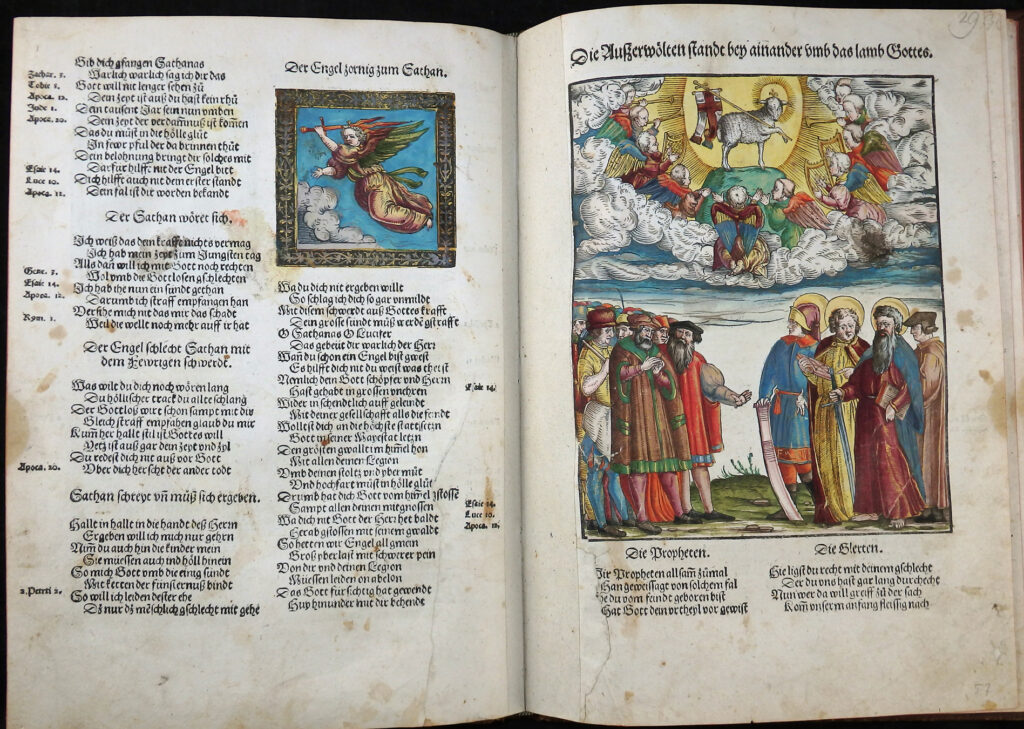 Gib dich gfangen Sathanas
Zachar. 3. Warlich warlich sag ich dir das
Tobie 8. Gott will nit lenger sehen zů
Apoca. 12. Dein zeyt ist auß du hast kein rhů
Jude 1. Dein tausent Jar sein nun vmden
Apoca. 20. Dein zeyt der verdamnuß ist kom̃en
Das du můst in die hölle glůt
In fewr pful der da brinnen thůt
Dein belohnung bringt dir solches mit
Esaie 14. Darfür hilfft nit der Engel bitt
Luce 10. Dich hilfft auch nit dein erster standt
Apoca. 12. Dein fal ist die worden bekandt
Der Sathan wöret sich.
Ich weiß das dein krafft nichts vermag
Ich hab mein zeyt zum Jungsten tag
Alls dañ will ich mit Gott noch rechten
Gene. 3. Wol vmb die Gottlosen gschlechten
Esaie 14. Ich hab ihe nun ein sündt gethan
Apoca. 12. Darumb ich straff empfangen han
Versihe mich nit das mir das schadt
Rom. 1. Weil die wellt noch mehr auff ir hat
Der Engel schlecht Sathan mit
dem Fewrigen schwerdt.
Was wilt du dich noch wören lang
Du höllischer track du allte schlang
Der Gottloß wirt schon sampt mit dir
Gleich straff empfahen glaub du mir
Kum̃ her hallt still ist Gottes will
Yetz ist auß gar dein zeyt vnd zyl
Du redest dich nit auß vor Gott
Apoca. 20. Vber dich herschet der ander todt
Sathan schreyt vñ můß sich ergeben.
Hallt in hallt in die handt deß Herrn
Ergeben will ich mich nur gehrn
Nim̃ du auch hin die kinder mein
Sie müessen auch ind höll hinein
So mich Gott vmb die einig sündt
Mit ketten der finsternuß bindt
2. Petri 2. So will ich leiden dester ehe
Dz nur dz mẽschlich gschlecht mit gehe
Der Engel zornig zum Sathan.
Wa du dich nit ergeben willt
So schlag ich dich so gar vnmildt
Mit disem schwerdt auß Gottes krafft
Dein grosse sündt můß werdẽ gstrafft
O Sathanas O Lucifer
Das gebeüt dir warlich der Herr
Wañ du schon ein Engel bist gwest
Es hilfft dich nit du weist was thetst
Nemlich dein Gott schöpfer vnd Herrn
Hast gehabt in grossen vnehren Esaie 14.
Wider in schendtlich auff geleindt
Mit deiner gsellschafft alls die feindt
Wolltest dich an die höchste statt setzen
Gott in seiner Mayestat letzen
Den grösten gwallt im him̃el hon
Mit allen deinen Legion
Vmb deinen stoltz vnd yber můt
Vnd hochfart můst in hölle glůt
Drumb hat dich Gott vom him̃el gstossẽ
Sampt allen deinen mitgnossen Esaie 14.
Wa dich nit Gott der Herr het baldt Luce 10.
Herab gstossen mit seinem gwaldt Apoca. 12.
So hetten wir Engel allgmein
Groß yberlast mit schwerer pein
Von dir vnd deinen Legion
Müessen leiden on abelon
Das Gott fürsichtig hat gewendt
Hup hinunder mit dir behendt
29
Die Außerwölten standt bey ainander vmb das lamb Gottes.
Die Propheten.
Jr Propheten allsam̃ zůmal
Han geweissagt von solchem fal
du vom feindt geboren bist
Hat Gott dein vrtheyl vor gewist
Die Glerten.
Hie ligst du recht mit deinem gschlecht
Der du vns hast gar lang durchecht
Nun wer da will greiff zů der sach
Kom̃ vnserm anfang fleissig nach
57